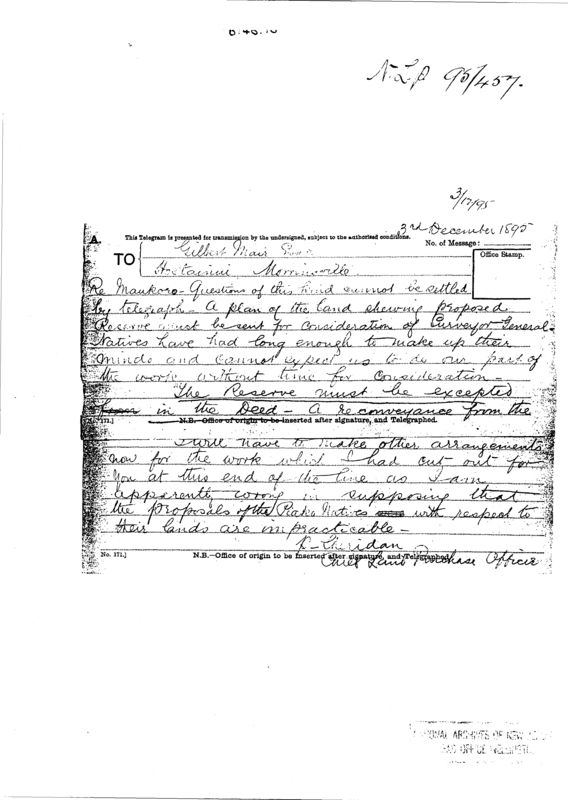 N.L.P 95/457.
3/12/95
3rd December 1895
A. This Telegram is presented for transmission by the undersigned, subject to the authorised conditions. No. of Message:
TO Gilbert Mair Esq
Morrinsville
Office Stamp.
Re Maukoro - Questions of this kind cannot be settled
by telegraph - A plan of the land shewing proposed
Reserve must be sent for consideration of Surveyor General -
Natives have had long enough to make up their
minds and cannot expect us to do our part of
the work without time for consideration -
The Reserve must be excepted
from in the Deed - A re conveyance from the
171.] N.B. Office of origin to be inserted after signature, and Telegraphed.
I will have to make other arrangements
now for the work which I had cut out for
you at this end of the line as I am
apparently wrong in supposing that
the proposals of the Natives with respect to
their lands are impracticable -
P. Sheridan
No. 171.] N.B.—Office of origin to be inserted after signature, and Telegraphed.
Chief Land Purchase Officer
ARCHIVES OF NEW
OFFICE